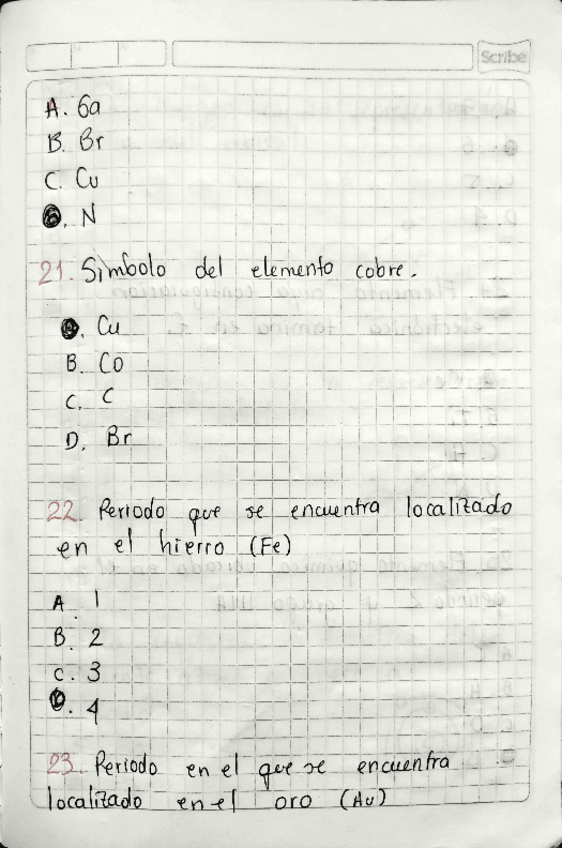 Scribe
A. 6a
B. Br
C. Cu
. N
21. Símbolo del elemento cobre.
. Cu
B. Co
C. C
D. Br
22. Periodo que se encuentra localizado
en el hierro (Fe)
A. 1
B. 2
C. 3
D. 4
23. Periodo en el que se encuentra
localizado en el oro (Au)